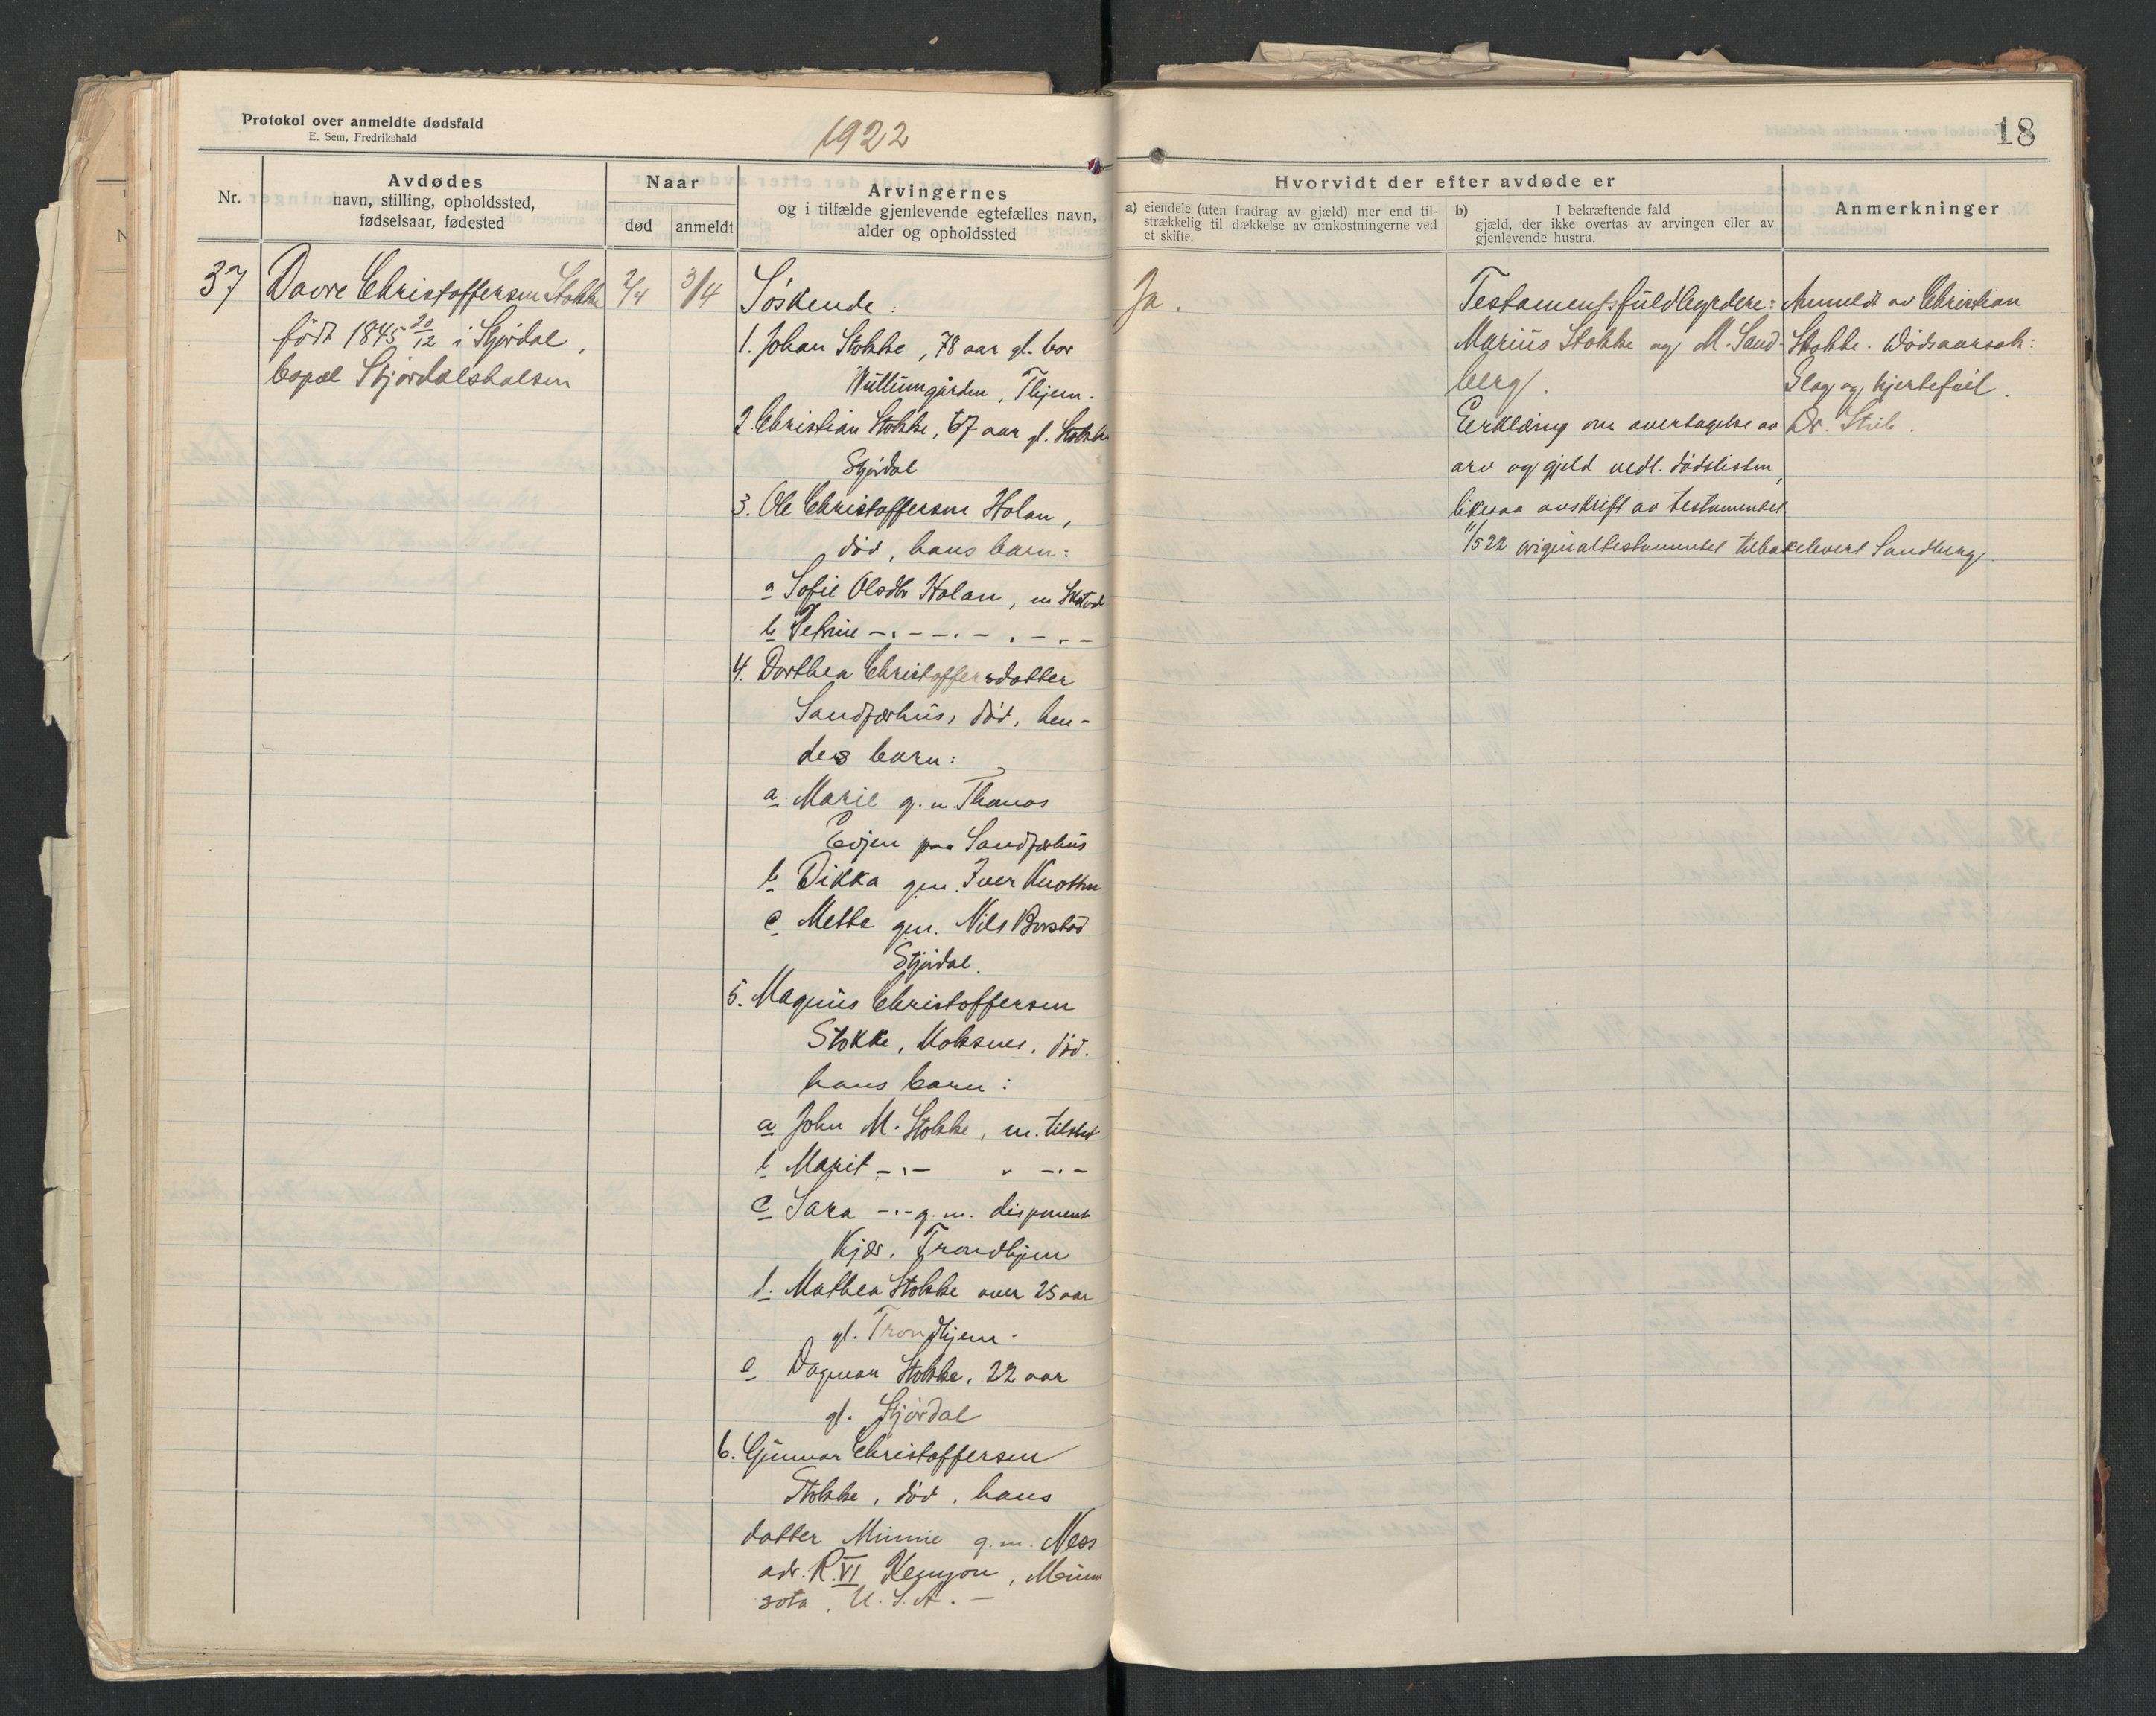 Protokol over anmeldte dødsfald
E. Sem, Fredrikshald
1922
Nr.
Avdødes
navn, stilling, opholdssted,
fødselsaar, fødested
Naar
død
anmeldt
Arvingernes
og i tilfælde gjenlevende egtefælles navn,
alder og opholdssted
37
Daore Christoffersen Stokke
født 1845 20/12 i Stjørdal,
bopæl Stjørdalshalsen
2/4
3/4
Søskende:
1. Johan Stokke, 78 aar gl. bor
Wullumgården, Thjem.
2. Christian Stokke, 67 aar gl. Stokke
Stjørdal
3. Ole Christoffersen Holan,
død, hans barn:
a Sofie Olsdtr Holan, m
b Petrine -.- -.- . -.-
4. Dorthea Christoffersdatter
Sandfærhus, død, hen-
des barn:
a Marie g. m. Thomas
Evjen paa Sandfærhus
b Dikka gm. Iver Knotten
c Mette gm. Nils Borstad
Stjørdal.
5. Magnus Christoffersen
Stokke, Moksnes, død.
hans barn:
a John M. Stokke, m. tilsted
b Marit -.- " -.-
c Sara -.- g. m. disponent
Kjær, Trondhjem
d. Mathea Stokke over 25 aar
gl. Trondhjem.
e Dagmar Stokke, 22 aar
gl. Stjørdal
6. Gunnar Christoffersen
Stokke, død, hans
datter Minnie g. m. Ness
adr. R. VI Kenyon, Minne
sota, U. S. A. -
18
Hvorvidt der efter avdøde er
a) eiendele (uten fradrag av gjæld) mer end til-
strækkelig til dækkelse av omkostningerne ved
et skifte.
b) I bekræftende fald
gjæld, der ikke overtas av arvingen eller av
gjenlevende hustru.
Anmerkninger
Ja.
Testamentsfuldbyrdere:
Marius Stokke og M. Sand-
berg.
Erklæring om overtagelse av
arv og gjeld vedl. dødslisten,
likesaa avskrift av testamentet
11/5 22 originaltestamentet tilbakelevert Sandberg.
Anmeldt av Christian
Stokke. Dødsaarsak:
Slag og hjertefeil.
Dr.